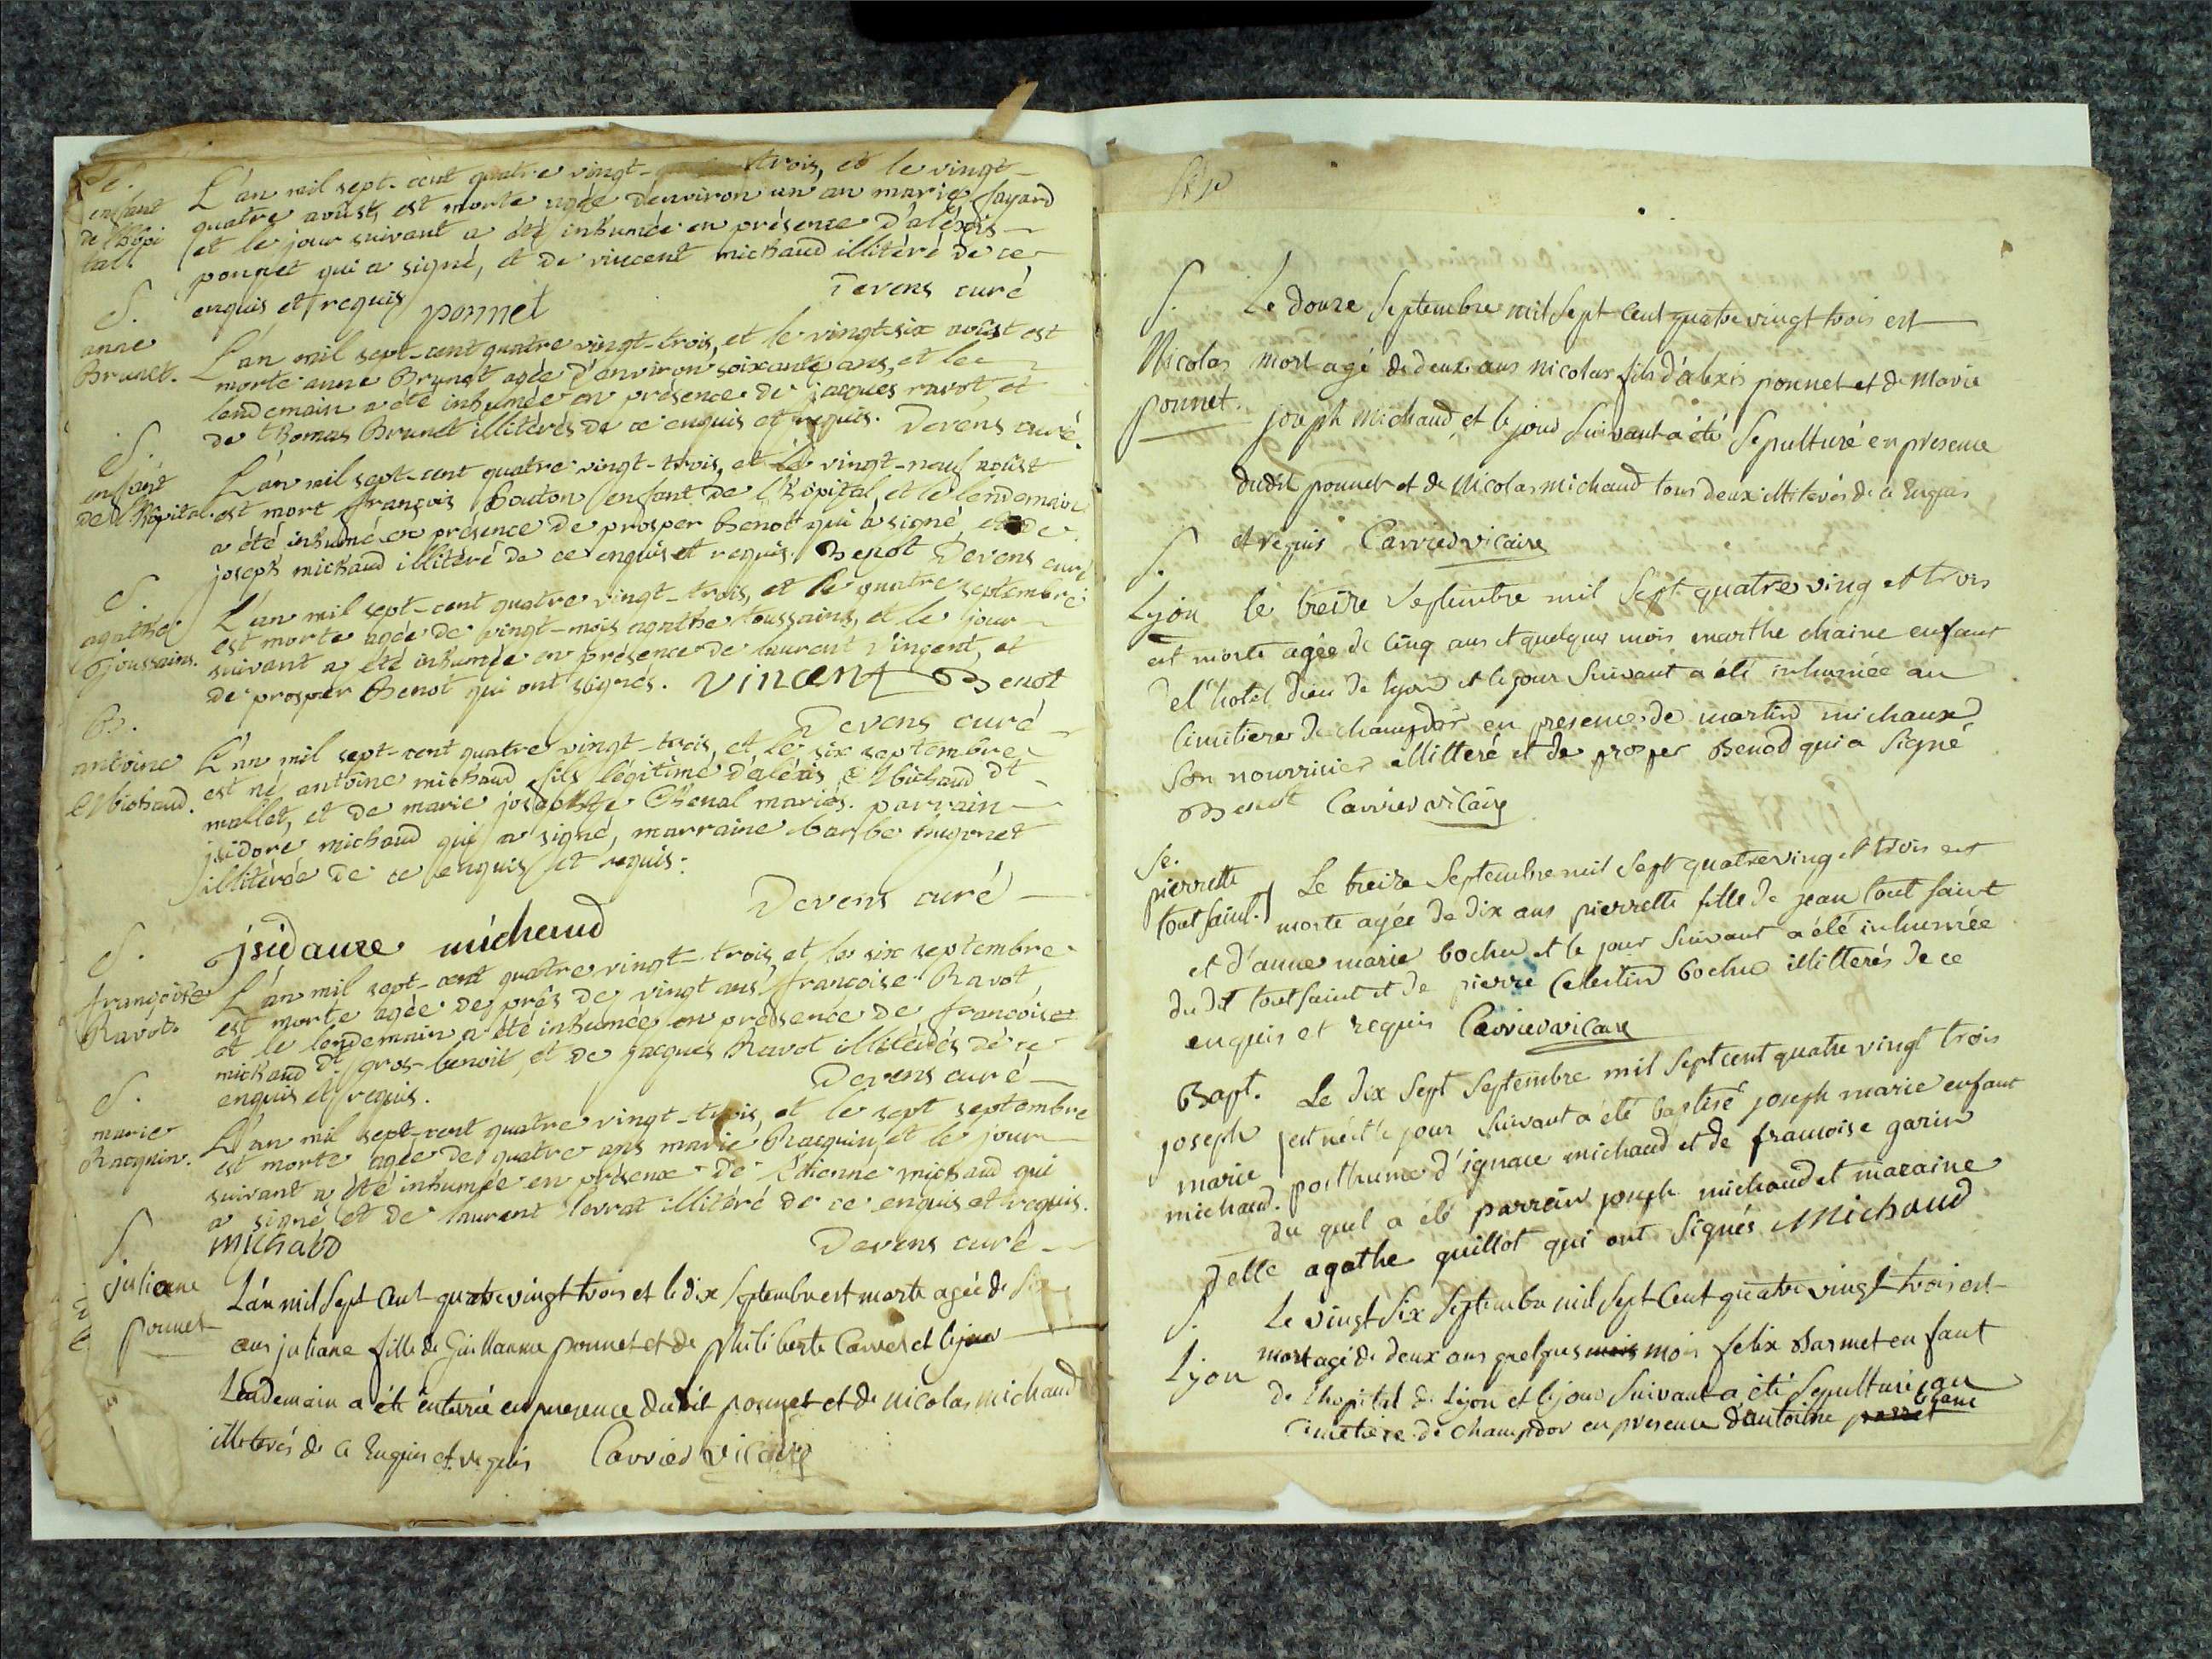 Se.
enfant
de l'hôpi
tal.
L'an mil sept-cent quatre vingt- trois, et le vingt-
quatre aoûst, est morte agée d'environ un an marie fayard
et le jour suivant a été inhumée en présence d'aléxis
ponnet qui a signé, et de vincent michaud illitéré de ce
enquis et requis ponnet Devens curé
S.
anne
Brunet.
L'an mil sept-cent quatre vingt-trois, et le vingt-six aoûst est
morte anne Brunet agée d'environ soixante ans, et le
lendemain a été inhumée en présence de jacques ravot, et
de thomas Brunet illitérés de ce enquis et requis. Devens curé.
S.
enfant
de l'hôpital.
L'an mil sept-cent quatre vingt-trois, et le vingt-neuf aoûst
est mort françois Bouton enfant de l'hôpital, et le lendemain
a été inhumé en présence de prosper Benot qui a signé, et de
joseph michaud illitéré de ce enquis et requis. Benot Devens curé
S.
agathe
toussains.
L'an mil sept-cent quatre vingt-trois, et le quatre septembre
est morte agée de vingt-mois agathe toussains, et le jour
suivant a été inhumée en présence de laurent vincent, et
de prosper Benot qui ont signés. vincent Benot
Devens curé
B.
antoine
Michaud.
L'an mil sept-cent quatre vingt-trois, et le six septembre
est né antoine michaud fils légitime d'aléxis Michaud dt
mallet, et de marie josephte Chenal mariés. parrain
jsidore michaud qui a signé, marraine barbe
illitérée de ce enquis et requis.
Devens curé
jsidaure michaud
S.
françoise
Ravot.
L'an mil sept-cent quatre vingt-trois, et le six septembre
est morte agée de près de vingt ans françoise Ravot,
et le lendemain a été inhumée en présence de françoise
michaud dt gros-benoit, et de jacques Ravot illitérés de ce
enquis et requis. Devens curé
S.
marie
Racquin.
L'an mil sept-cent quatre vingt-trois, et le sept septembre
est morte agée de quatre ans marie Racquin, et le jour
suivant a été inhumée en présence de étienne michaud qui
a signé et de laurent levrat illitéré de ce enquis et requis.
michaud Devens curé
S.
juliane
ponnet
L'an mil Sept Cent quatre vingt trois et le dix Septembre est morte agée de six
ans juliane fille de Guillaume ponnet et de Philiberte Carrel et le jour
Lendemain a été enterrée en presence dudit ponnet et de nicolas michaud
illiterés de ce Enquis et requis Carrier vicaire
S.
Nicolas
ponnet.
Le douze Septembre mil Sept Cent quatre vingt trois est
mort agé de deux ans nicolas fils d'alexis ponnet et de Marie
joseph Michaud et le jour Suivant a été Sepulturé en presence
dudit ponnet et de Nicolas michaud tous deux illiterés de ce Enquis
et requis Carrier vicaire
S.
Lyon
le treize Septembre mil Sept quatre ving et trois
est morte agée de Cinq ans et quelques mois marthe chaine enfant
del'hotel Dieu de lyon et le jour Suivant a été inhumée au
Cimitiere de champdor en presence de martin michaux
Son nourricier illitteré et de prosper Benod qui a Signé
Benot Carrier vicaire
Se.
pierrette
tout saint.
Le treize Septembre mil Sept quatre ving et trois est
morte agée de dix ans pierrette fille de jean tout saint
et d'anne marie bochu et le jour Suivant a été inhumée
du dit tout saint et de pierre Celestin bochu illitterés de ce
enquis et requis Carrier vicaire
Bapt.
joseph
marie
michaud.
Le dix Sept Septembre mil Sept cent quatre vingt trois
est né et le jour Suivant a été baptisé joseph marie enfant
posthume d'ignace michaud et de francoise garin
du quel a été parrain joseph michaud et maraine
delle agathe guillot qui ont Signés Michaud
S.
Lyon
Le vingt Six Septembre mil Sept Cent quatre vingt trois est
mort agé de deux ans quelques mois mois felix Barmet enfant
de Lhopital de Lyon et le jour Suivant a été Sepulturé au
Cimetiere de Champdor en presence d'antoine ponnet